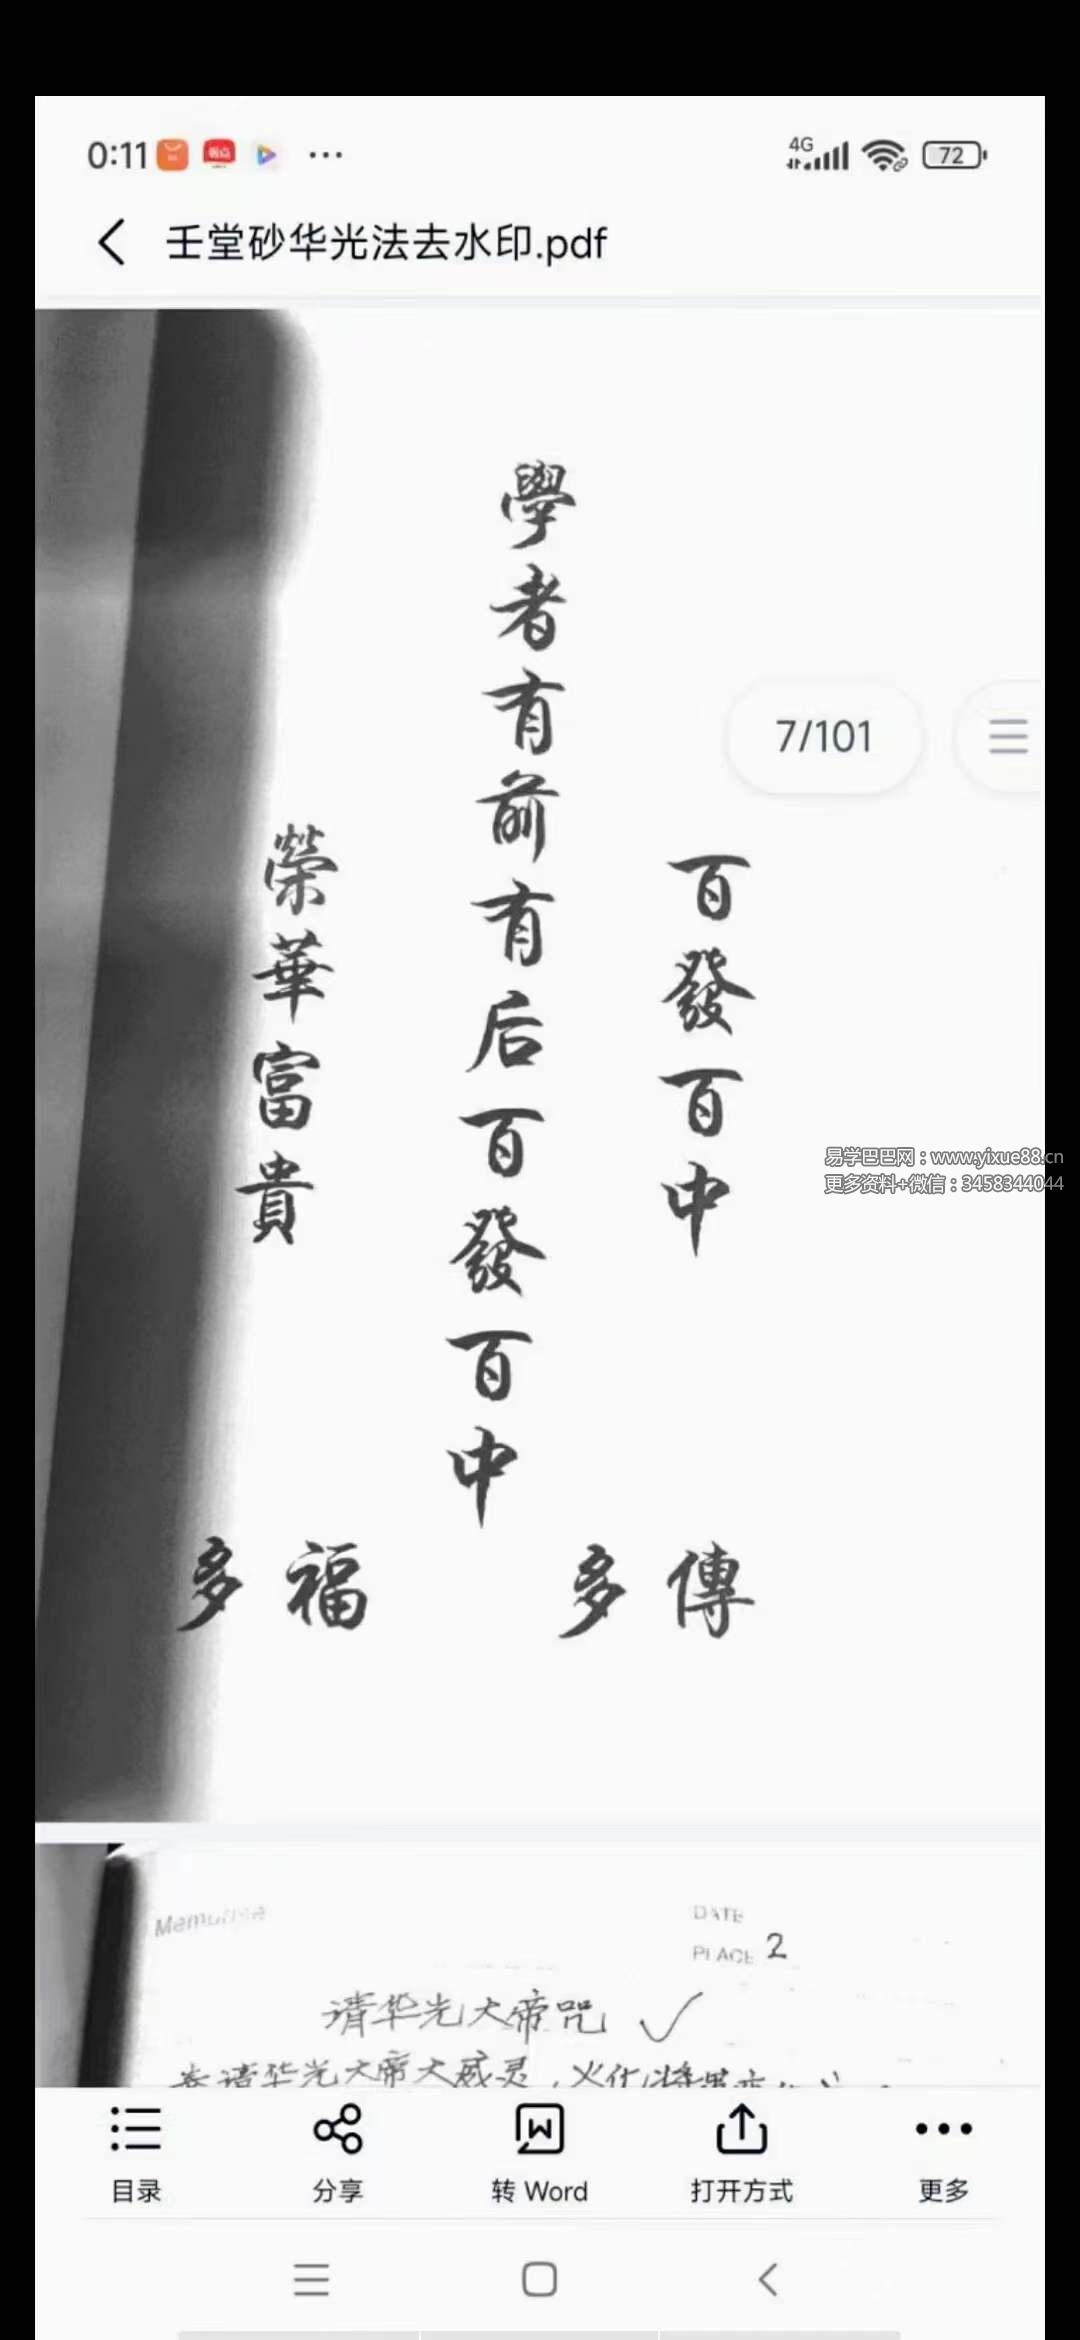 0:11
4G
72
壬堂砂华光法去水印.pdf
7/101
百發百中
學者有前有后百發百中
榮華富貴
多福 多傳
易学巴巴网：www.yixue88.cn
更多资料+微信：3458344044
DATE
PLACE 2
请华光大帝咒
奉请华光大帝大威灵，火化
目录 分享 转 Word 打开方式 更多